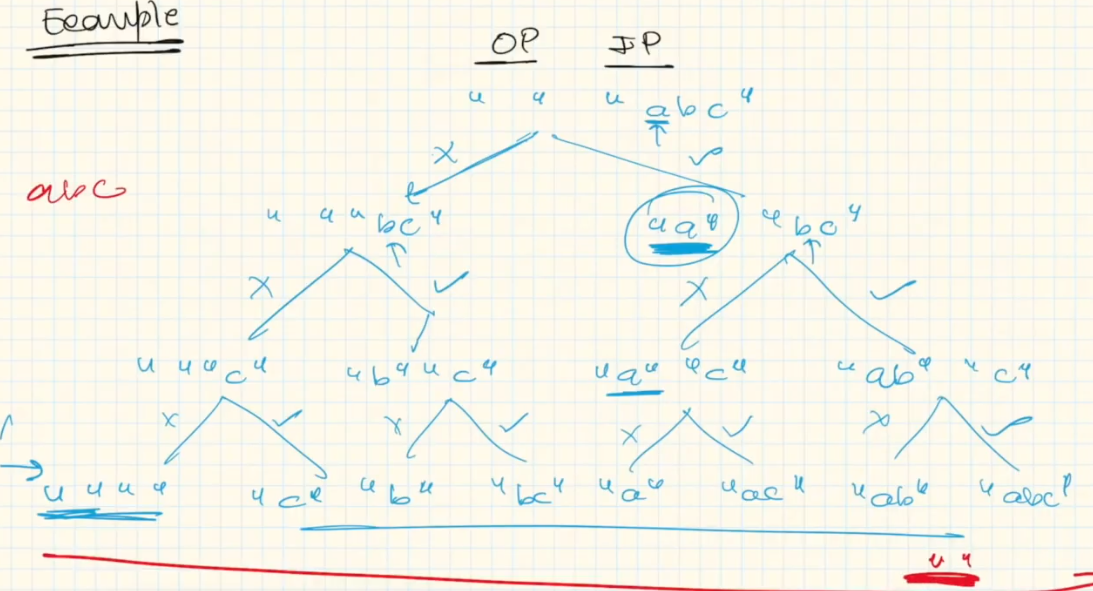 Example
OP IP
" " "abc"
✗ ✓
abc
" " "bc" "a" "bc"
✗ ✓ ✗ ✓
" " "c" "b" "c" "a" "c" "ab" "c"
✗ ✓ ✗ ✓ ✗ ✓ ✗ ✓
" " " " "c" "b" "bc" "a" "ac" "ab" "abc"
" "